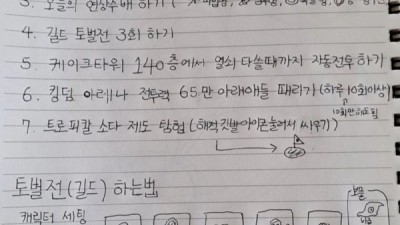 3. 오늘의 현상수배 하기 (
4. 길드 토벌전 3회 하기
5. 케이크타워 140층에서 열쇠 다쓸때까지 자동전투하기
6. 킹덤 아레나 전투력 65만 아래애들 때리기 (하루 10회이상)
10회만해도 됨
7. 트로피칼 소다 제도 탐험 (해적깃발아이콘눌러서 싸우기)
토벌전(길드) 하는법
캐릭터 세팅
보물